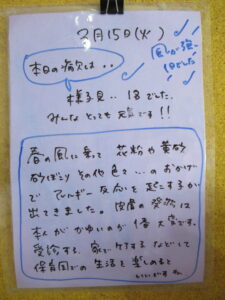 2月15日(火)
風が強い
1日でした
本日の病欠は・・
様子見‥1名でした。
みんなとっても元気です!!
春の風に乗って 花粉や黄砂
砂ぼこり その他色々…のおかげ
で アレルギー反応を起こす子が
出てきました。皮膚の発疹は
本人がかゆいのが1番大変です。
受診する、家でケアするなどして
保育園での生活を楽しめると
いいですね